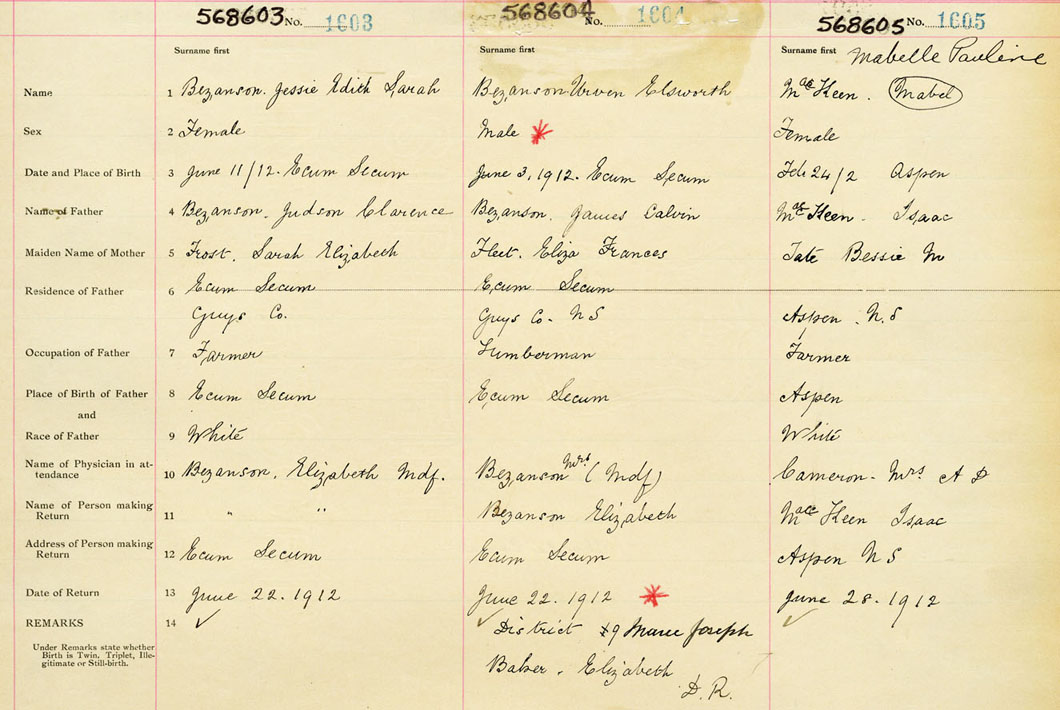 568603 No. 1603 568604 No. 1604 568605 No. 1605
Surname first Surname first Surname first Mabelle Pauline
Name 1 Bezanson. Jessie Edith Sarah Bezanson Urven Elsworth MacKeen. Mabel
Sex 2 Female Male * Female
Date and Place of Birth 3 June 11/12. Ecum Secum June 3, 1912. Ecum Secum Feb 24/2 Aspen
Name of Father 4 Bezanson, Judson Clarence Bezanson. James Calvin MacKeen. Isaac
Maiden Name of Mother 5 Frost, Sarah Elizabeth Fleet. Eliza Frances Tate Bessie M
Residence of Father 6 Ecum Secum Ecum Secum
Guys Co. Guys Co. N S Aspen. N.S
Occupation of Father 7 Farmer Lumberman Farmer
Place of Birth of Father 8 Ecum Secum Ecum Secum Aspen
and
Race of Father 9 White White
Name of Physician in at-
tendance 10 Bezanson, Elizabeth Mdf. Bezanson Mrs (Mdf) Cameron. Mrs A D
Name of Person making
Return 11 " " Bezanson Elizabeth MacKeen Isaac
Address of Person making
Return 12 Ecum Secum Ecum Secum Aspen N S
Date of Return 13 June 22. 1912 June 22. 1912 * June 28. 1912
REMARKS 14 ✓ ✓ District #9 Marie Joseph ✓
Under Remarks state whether
Birth is Twin, Triplet, Ille-
gitimate or Still-birth.
Baker. Elizabeth
D. R.